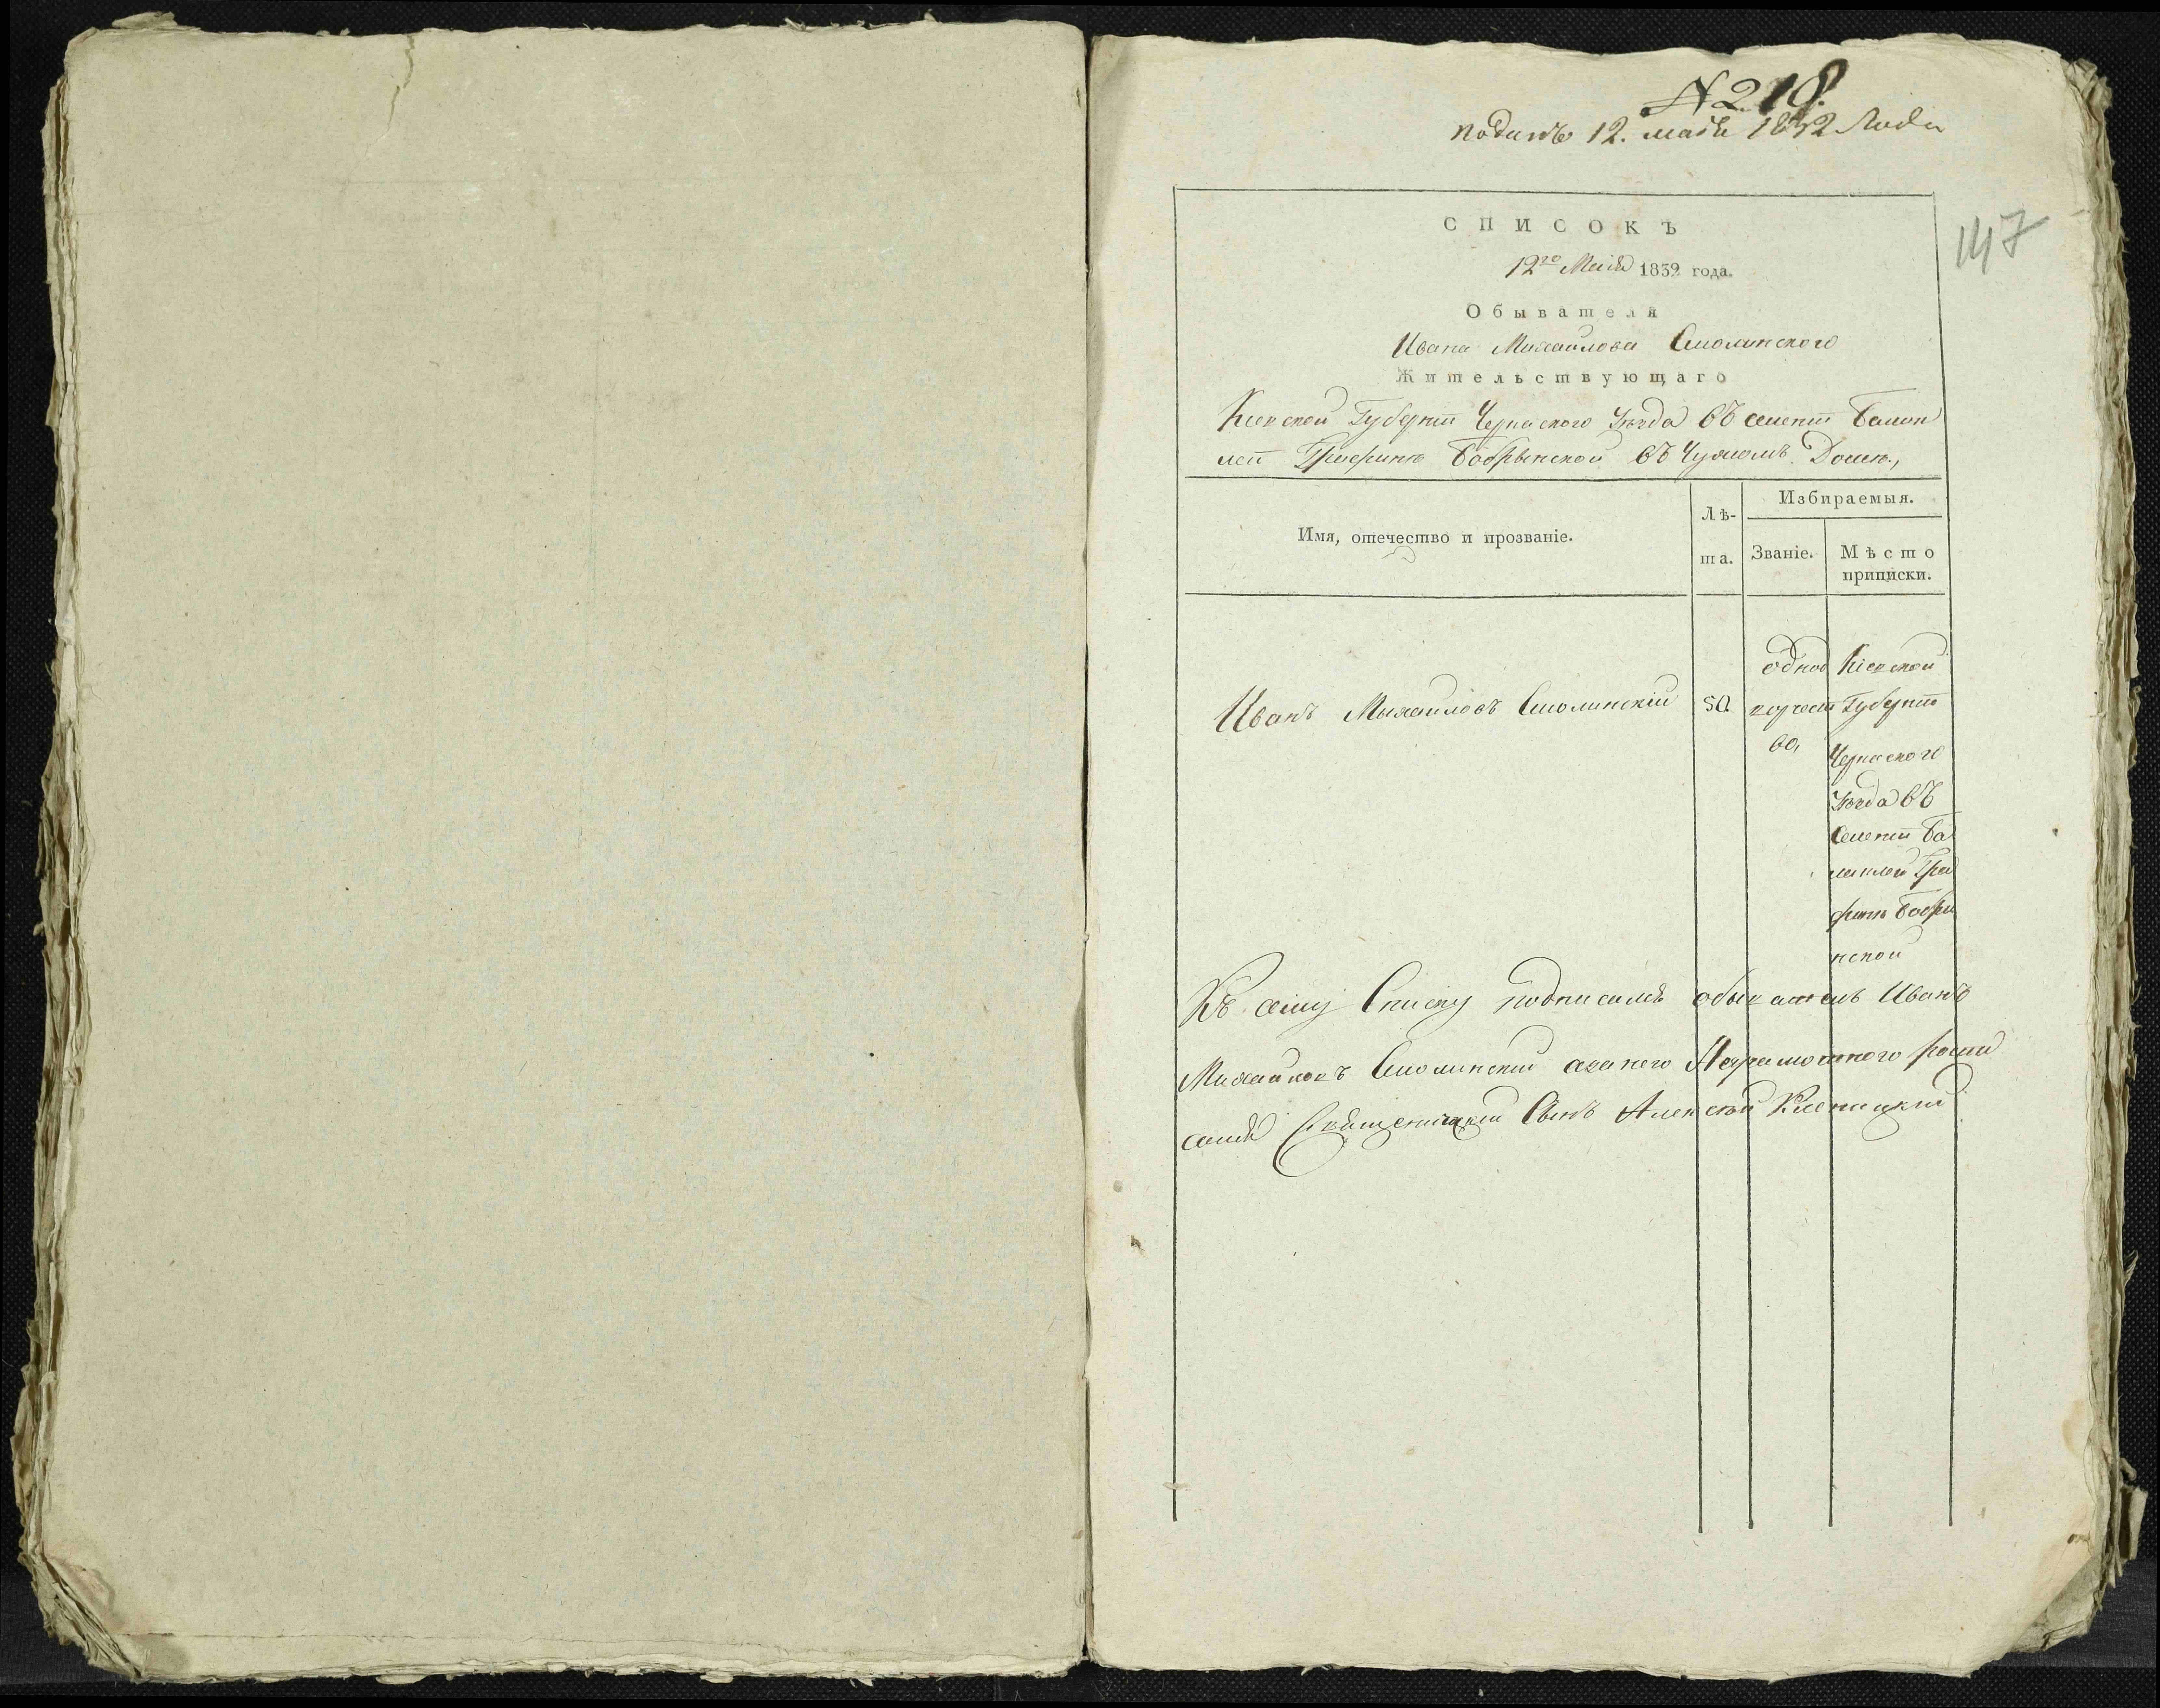 N 218.
поданъ 12. маія 1832 Года
147
СПИСОКЪ
12го Маія 1832 года.
Обывателя
Ивана Михайлова Смолинского
Жительствующаго
Кіевской Губерніи Черкаского Уѣзда въ селеніи Балак
леи Графинѣ Бобрынской въ Чужомъ Доме,
Имя, отечество и прозваніе.
Лѣ-
та.
Избираемыя.
Званіе.
Мѣсто
приписки.
Иванъ Михайловъ Смолинскій
50
однод
ворчест
во,
Кіевской
Губерніи
Черкаского
Уѣзда въ
Селеніи Ба
лаклеи Гра
финѣ Бобри
нской
Къ сему Списку подписался обыватель Иванъ
Михайловъ Смолинскій азанего Неграмотного роспи
сался Священическій Сынъ Алексей